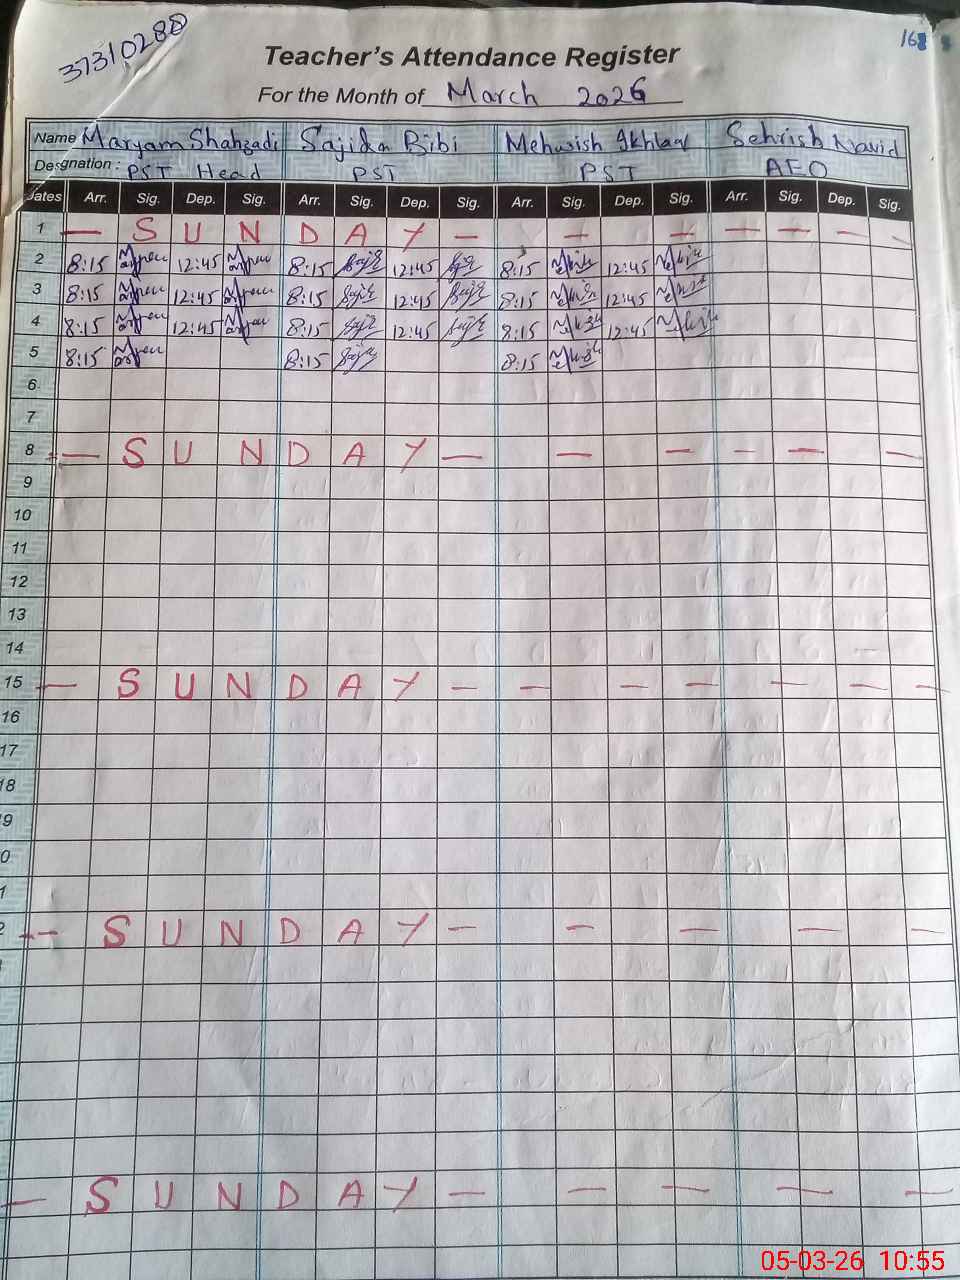 37310288
168
Teacher's Attendance Register
For the Month of March 2026
Name Maryam Shahzadi Sajida Bibi Mehwish Ikhlaq Sehrish Navid
Designation: PST Head PST PST AEO
Dates Arr. Sig. Dep. Sig. Arr. Sig. Dep. Sig. Arr. Sig. Dep. Sig. Arr. Sig. Dep. Sig.
1 — S U N D A Y — — — — — — —
2 8:15 12:45 8:15 12:45 8:15 12:45
3 8:15 12:45 8:15 12:45 8:15 12:45
4 8:15 12:45 8:15 12:45 8:15 12:45
5 8:15 8:15 8:15
6
7
8 — S U N D A Y — — — — — —
9
10
11
12
13
14
15 — S U N D A Y — — — — — — —
16
17
18
9
0
1
2 — S U N D A Y — — — — —
— S U N D A Y — — — — —
05-03-26 10:55